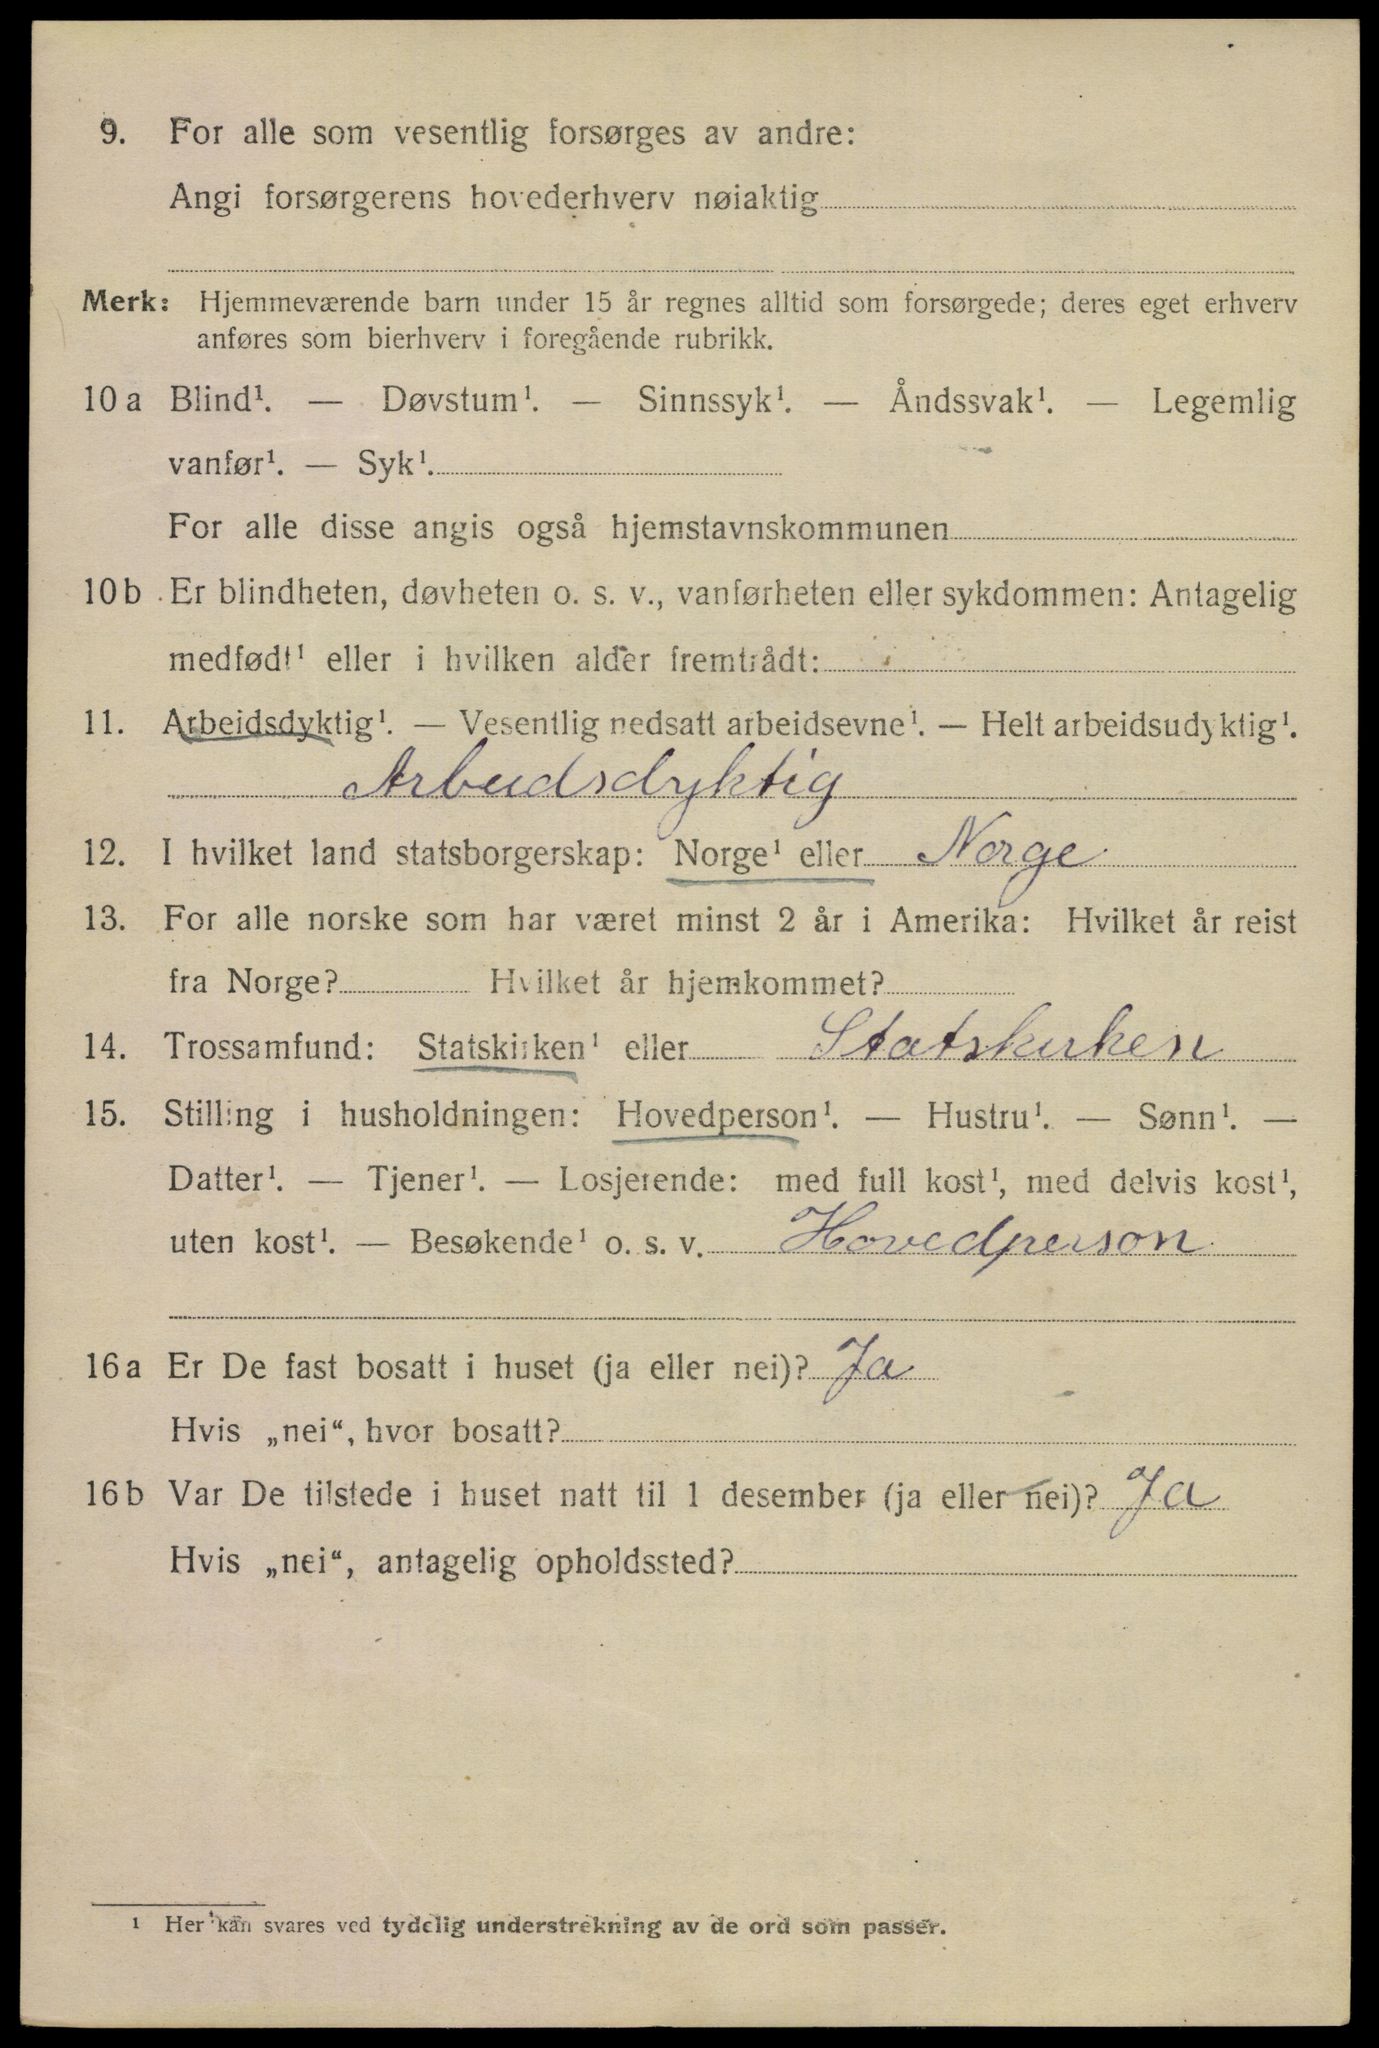 9. For alle som vesentlig forsørges av andre:
Angi forsørgerens hovederhverv nøiaktig
Merk: Hjemmeværende barn under 15 år regnes alltid som forsørgede; deres eget erhverv
anføres som bierhverv i foregående rubrikk.
10 a Blind¹. — Døvstum¹. — Sinnssyk¹. — Åndssvak¹. — Legemlig
vanfør¹. — Syk¹.
For alle disse angis også hjemstavnskommunen
10 b Er blindheten, døvheten o. s. v., vanførheten eller sykdommen: Antagelig
medfødt¹ eller i hvilken alder fremtrådt:
11. Arbeidsdyktig¹. — Vesentlig nedsatt arbeidsevne¹. — Helt arbeidsudyktig¹.
Arbeidsdyktig
12. I hvilket land statsborgerskap: Norge¹ eller Norge
13. For alle norske som har været minst 2 år i Amerika: Hvilket år reist
fra Norge? Hvilket år hjemkommet?
14. Trossamfund: Statskirken¹ eller Statskirken
15. Stilling i husholdningen: Hovedperson¹. — Hustru¹. — Sønn¹. —
Datter¹. — Tjener¹. — Losjerende: med full kost¹, med delvis kost¹,
uten kost¹. — Besøkende¹ o. s. v. Hovedperson
16 a Er De fast bosatt i huset (ja eller nei)? Ja
Hvis „nei“, hvor bosatt?
16 b Var De tilstede i huset natt til 1 desember (ja eller nei)? Ja
Hvis „nei“, antagelig opholdssted?
¹ Her kan svares ved tydelig understrekning av de ord som passer.